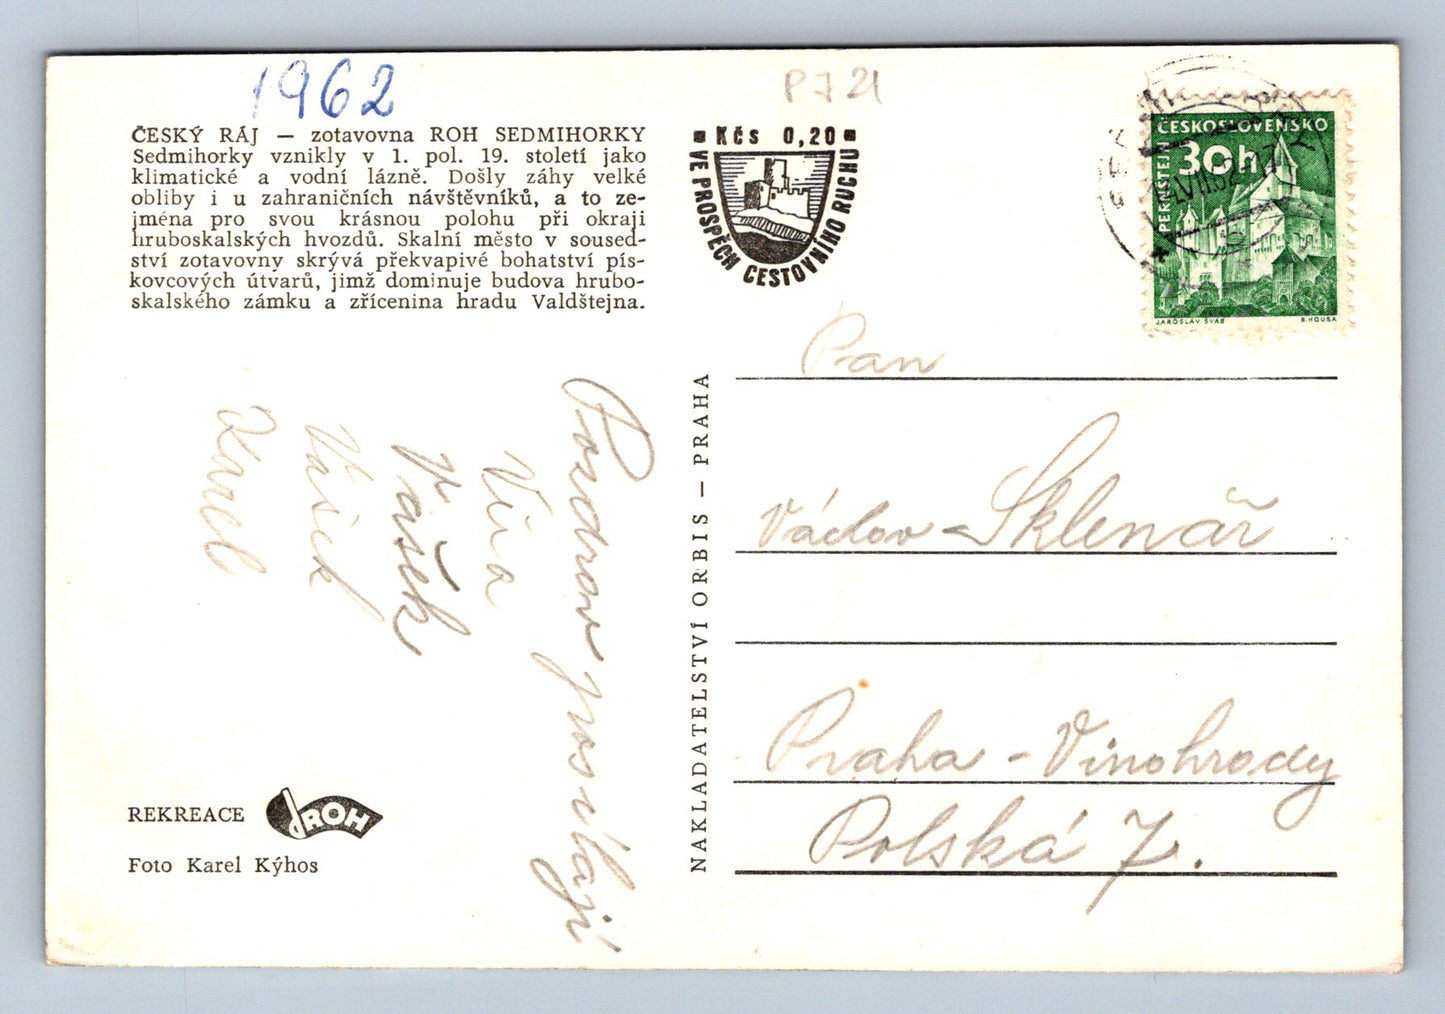 1962
P721
ČESKÝ RÁJ — zotavovna ROH SEDMIHORKY
Sedmihorky vznikly v 1. pol. 19. století jako
klimatické a vodní lázně. Došly záhy velké
obliby i u zahraničních návštěvníků, a to ze-
jména pro svou krásnou polohu při okraji
hruboskalských hvozdů. Skalní město v soused-
ství zotavovny skrývá překvapivé bohatství pís-
kovcových útvarů, jimž dominuje budova hrubo-
skalského zámku a zřícenina hradu Valdštejna.
Kčs 0,20
VE PROSPĚCH CESTOVNÍHO RUCHU
ČESKOSLOVENSKO
30h
PERNŠTEJN
JAROSLAV ŠVÁB
B. HOUSA
Pozdrav posílají
Věra
Vašek
Vašek
Karel
REKREACE ROH
Foto Karel Kýhos
NAKLADATELSTVÍ ORBIS — PRAHA
Pan
Václav Sklenář
Praha - Vinohrady
Polská 7.